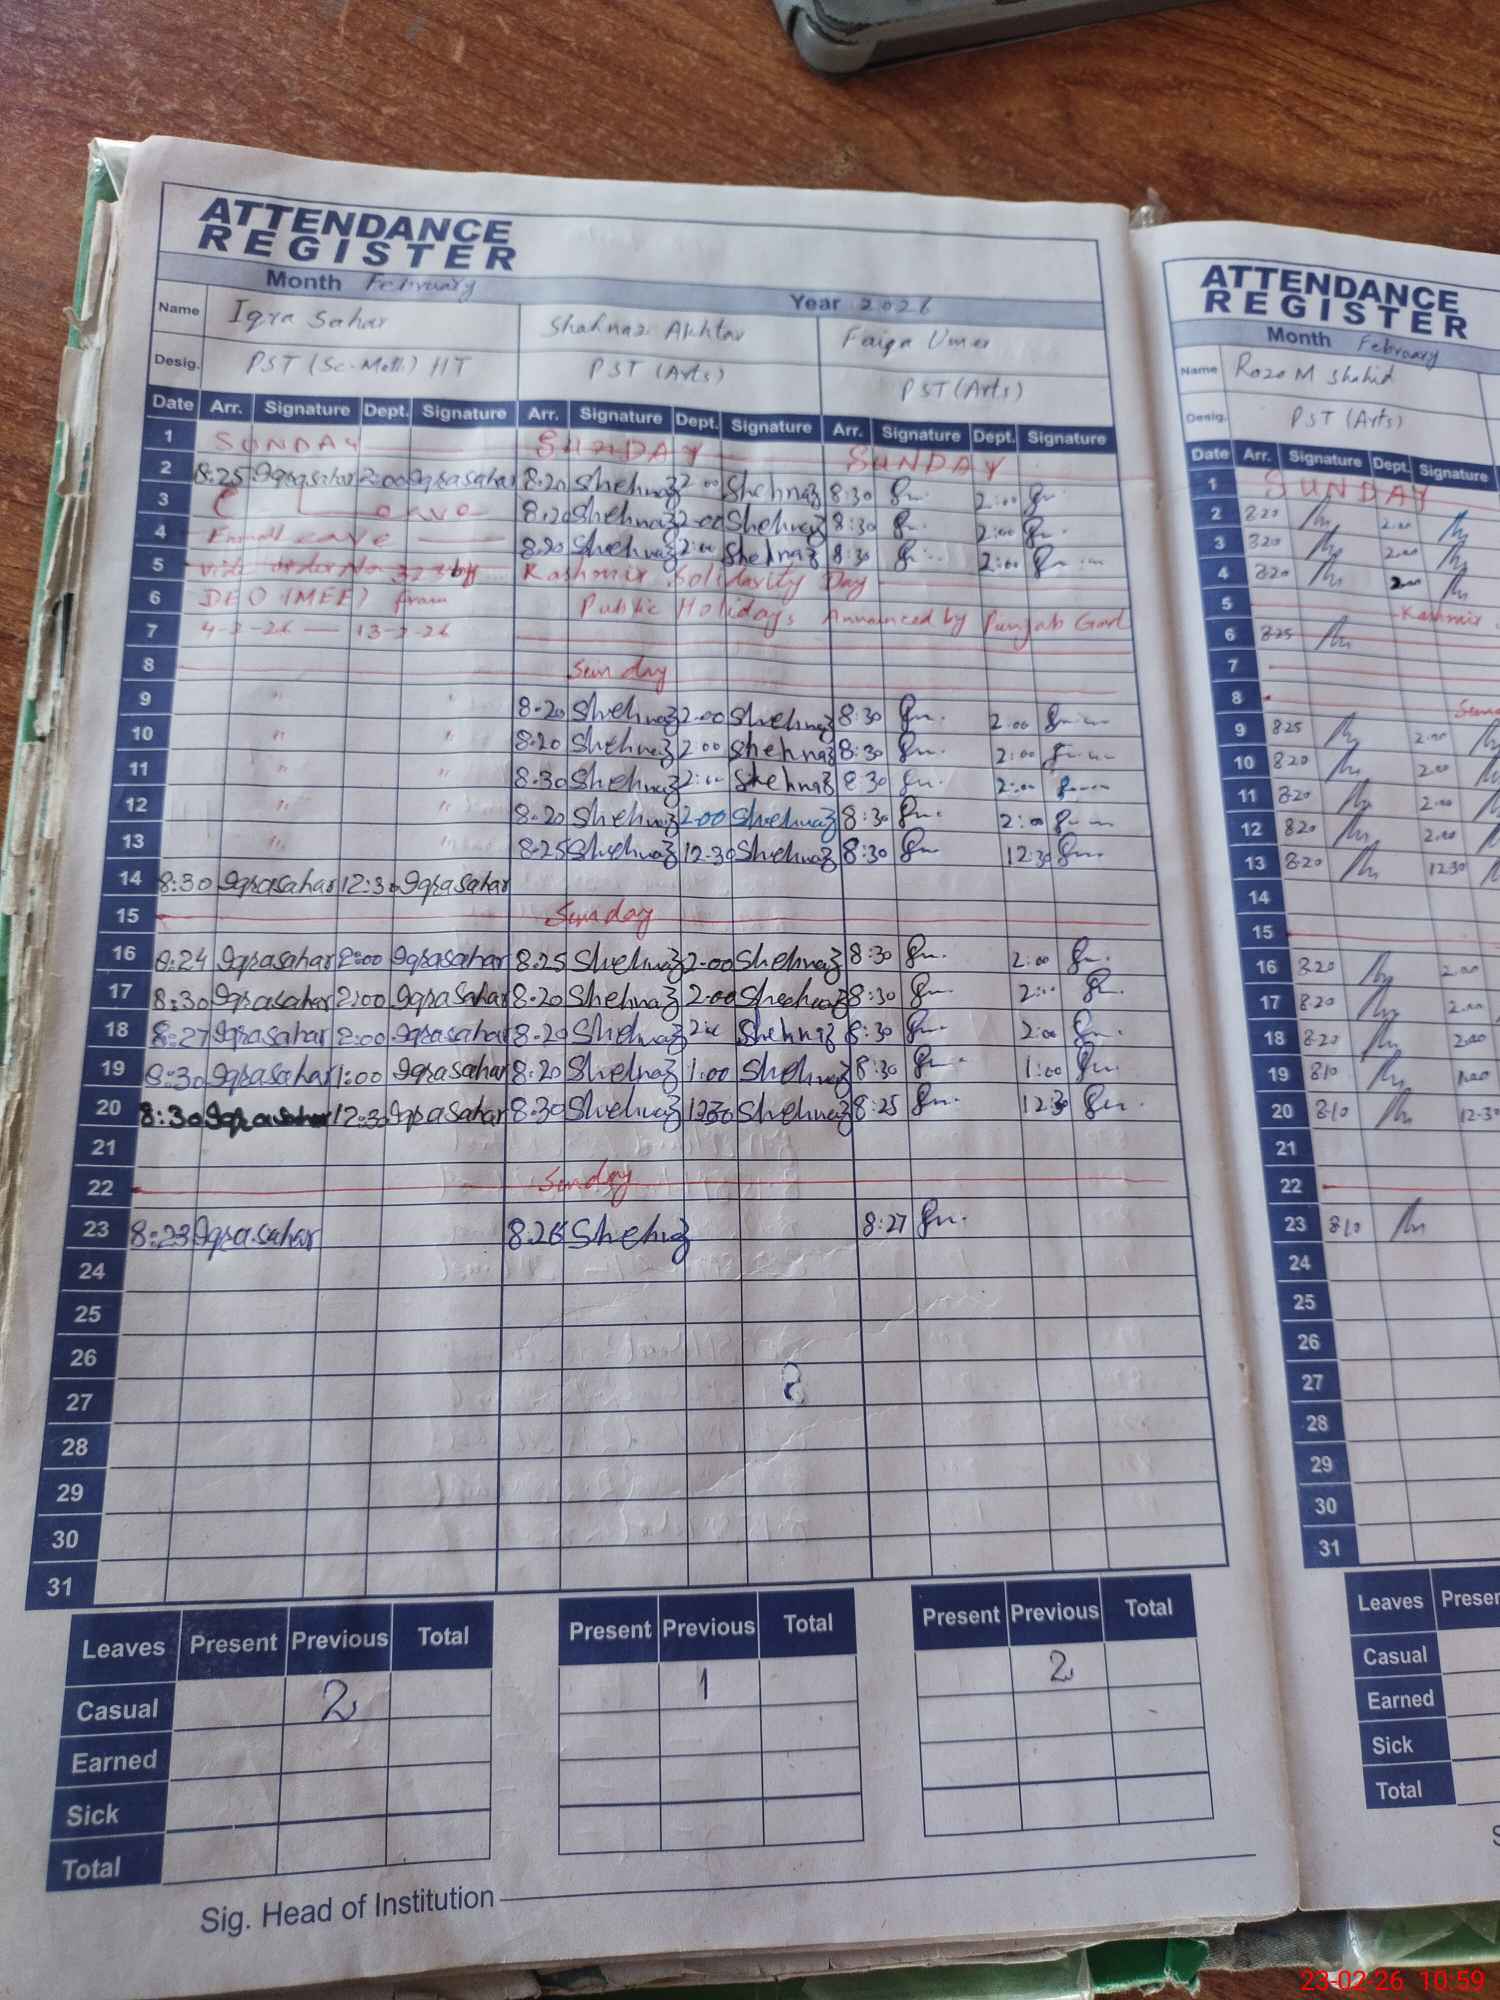 ATTENDANCE
REGISTER
Month February Year 2026
Name Iqra Sahar Shahnaz Akhtar Faiqa Umer
Desig. PST (Sc-Math) HT PST (Arts) PST (Arts)
Date Arr. Signature Dept. Signature Arr. Signature Dept. Signature Arr. Signature Dept. Signature
1 SUNDAY SUNDAY SUNDAY
2 8:25 Iqrasahar 2:00 Iqrasahar 8.20 Shehnaz 2.00 Shehnaz 8:30 2:00
3 8.20 Shehnaz 2.00 Shehnaz 8:30 2:00
4 leave 8.20 Shehnaz 2:00 Shehnaz 8:30 2:00
5 vide order No Kashmir Solidarity Day
6 DEO (MEE) from Public Holiday, Announced by Punjab Govt
7 4-2-26 — 13-2-26
8 Sunday
9 " " 8.20 Shehnaz 2.00 Shehnaz 8:30 2:00
10 " " 8.20 Shehnaz 2:00 Shehnaz 8:30 2:00
11 " " 8.30 Shehnaz 2:00 Shehnaz 8:30 2:00
12 " " 8.20 Shehnaz 2.00 Shehnaz 8:30 2:00
13 " " 8.25 Shehnaz 12.30 Shehnaz 8:30 12:30
14 8:30 Iqrasahar 12:30 Iqrasahar
15 Sunday
16 8:24 Iqrasahar 2:00 Iqrasahar 8.25 Shehnaz 2.00 Shehnaz 8:30 2:00
17 8:30 Iqrasahar 2:00 Iqrasahar 8.20 Shehnaz 2.00 Shehnaz 8:30 2:00
18 8:27 Iqrasahar 2:00 Iqrasahar 8.20 Shehnaz 2:00 Shehnaz 8:30 2:00
19 8:30 Iqrasahar 1:00 Iqrasahar 8.20 Shehnaz 1.00 Shehnaz 8:30 1:00
20 8:30 Iqrasahar 12:30 Iqrasahar 8.30 Shehnaz 1230 Shehnaz 8:25 12:30
21
22 Sunday
23 8:23 Iqrasahar 8.26 Shehnaz 8:27
24
25
26
27
28
29
30
31
Leaves Present Previous Total Present Previous Total Present Previous Total
Casual 2 1 2
Earned
Sick
Total
Sig. Head of Institution
ATTENDANCE
REGISTER
Month February
Name Rozo M Shahid
Desig. PST (Arts)
Date Arr. Signature Dept. Signature
1 SUNDAY
2 820 2.00
3 820 2.00
4 820 2.00
5 Kashmir
6 825
7
8
9 825 2.00
10 820 2.00
11 820 2.00
12 820 2.00
13 820 12.30
14
15
16 820 2.00
17 820 2.00
18 820 2.00
19 810 1.00
20 810 12.30
21
22
23 810
24
25
26
27
28
29
30
31
Leaves
Casual
Earned
Sick
Total
23-02-26 10:59